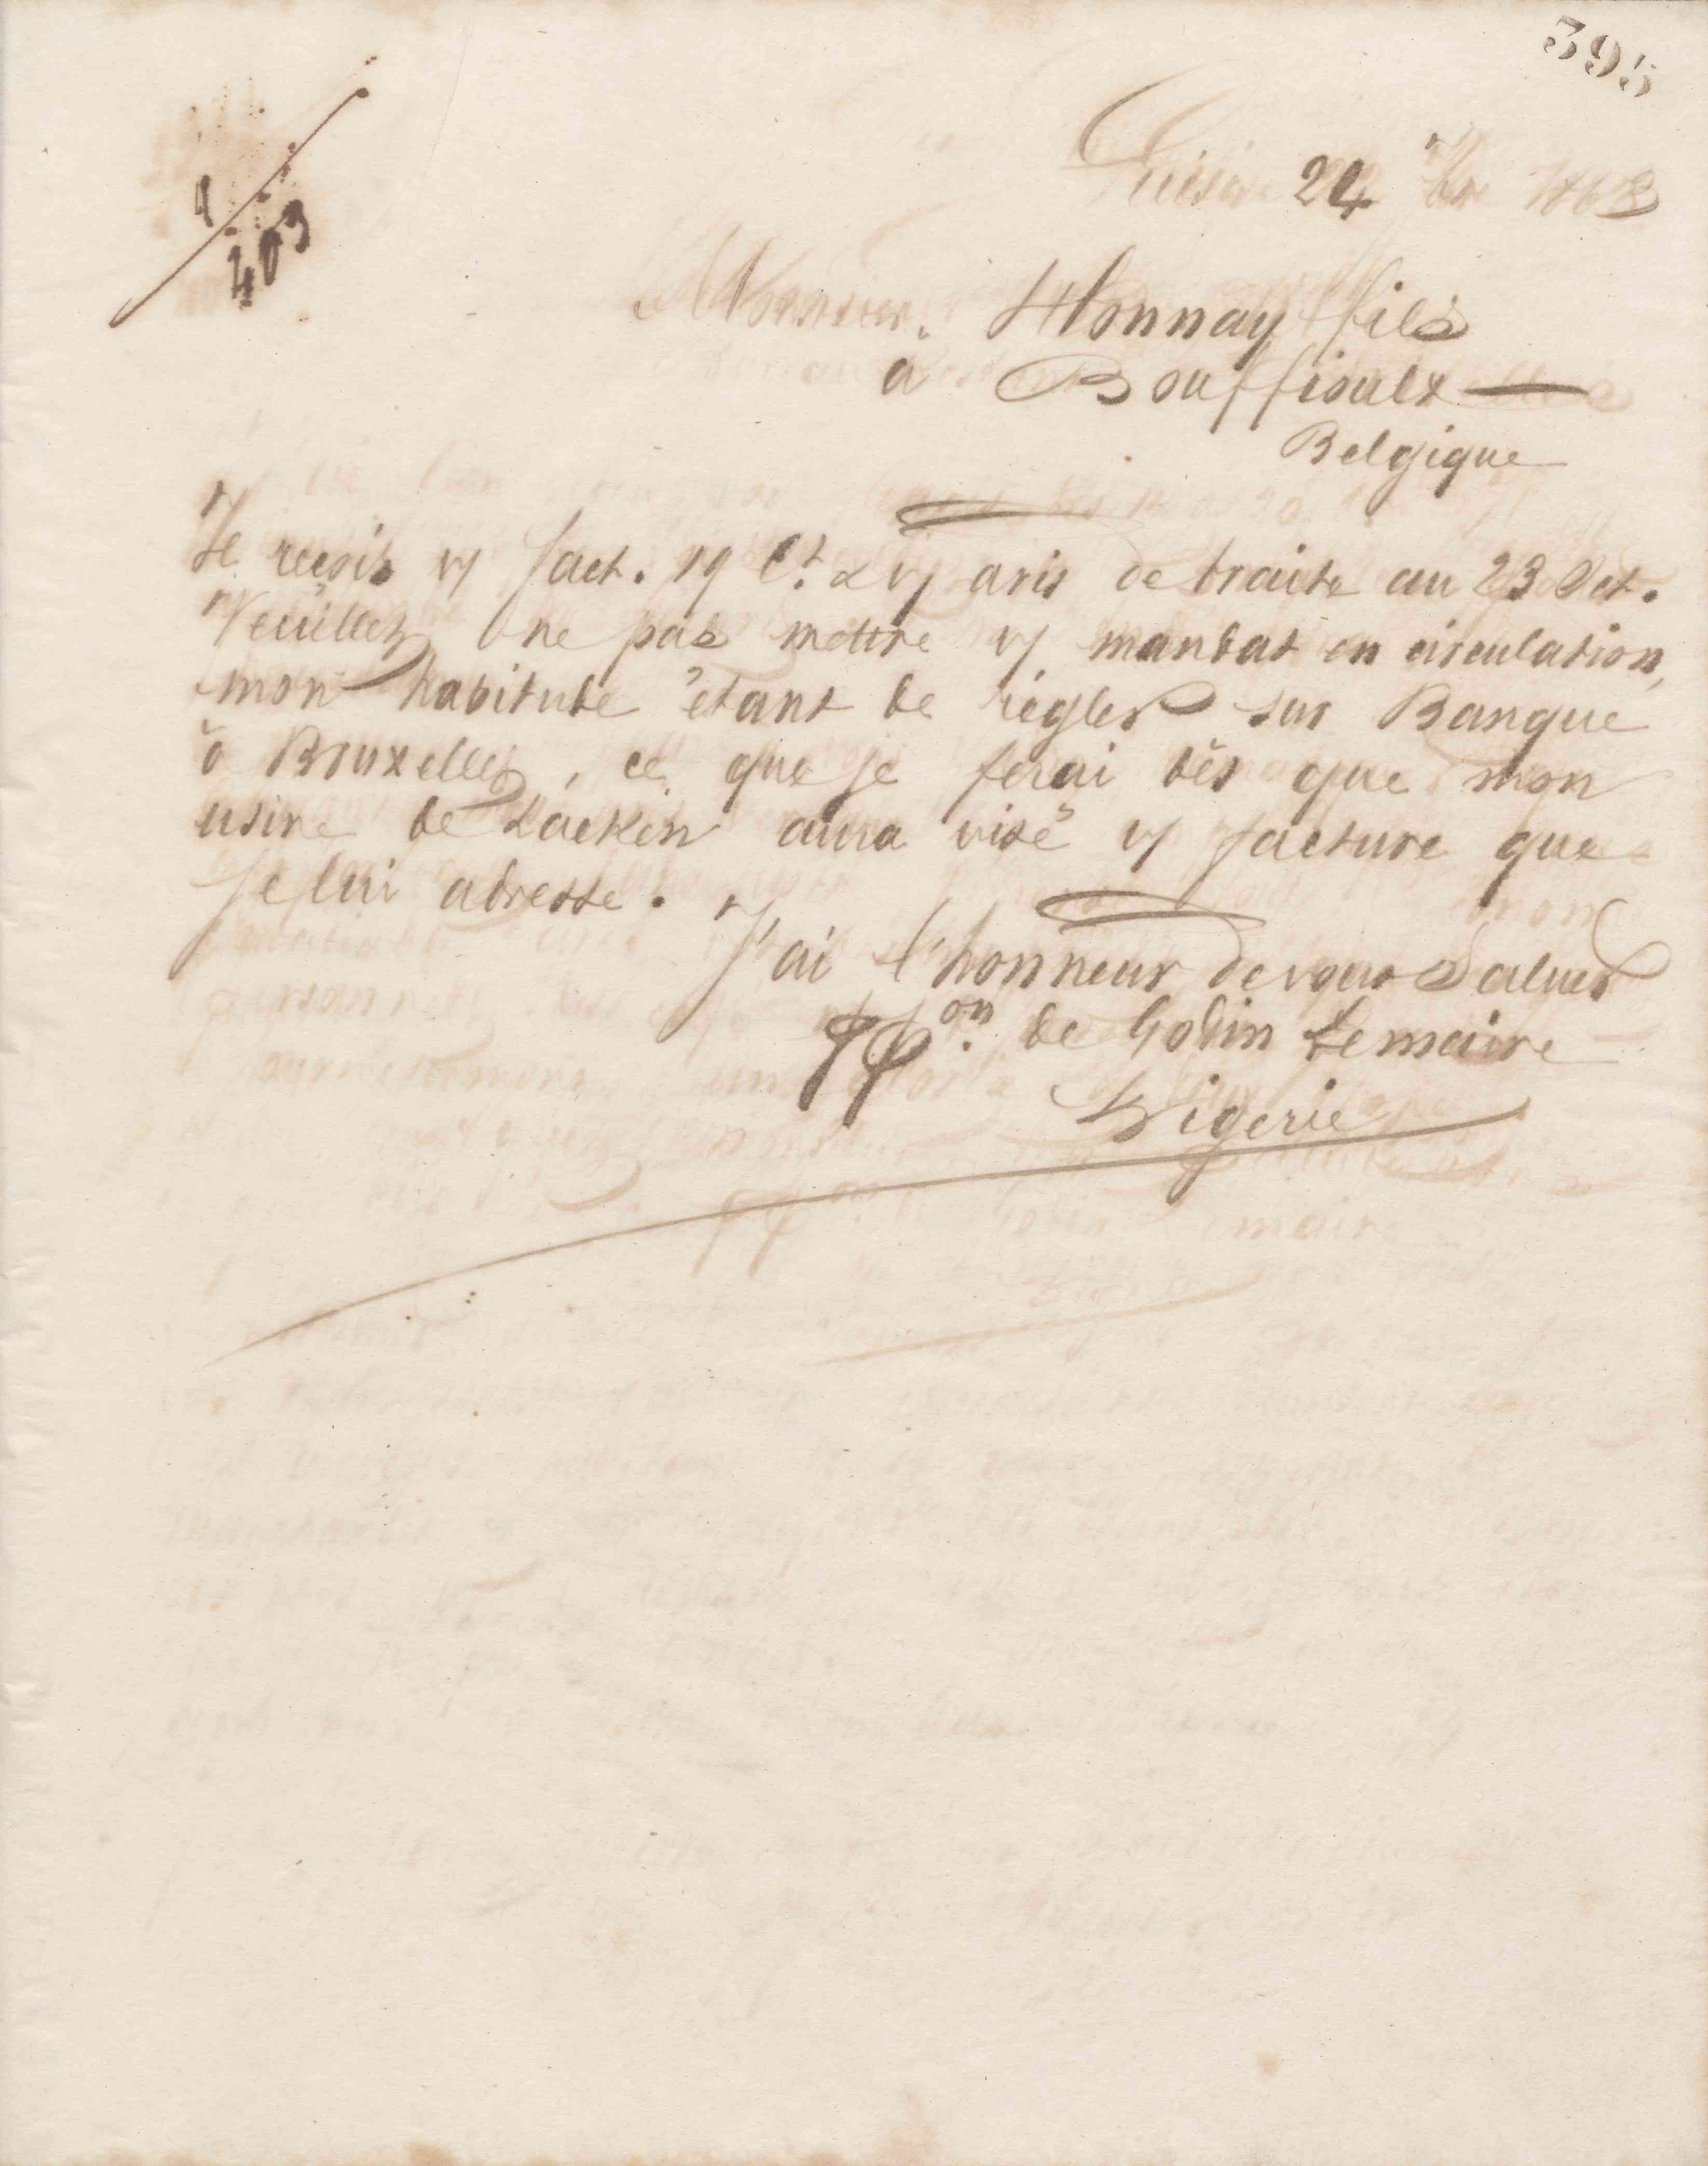 395
1
403
Guise 24 7bre 1868
Monsieur Honnay fils
à Bouffioulx
Belgique
Je reçois v/ fact. 19 Ct & v/ avis de traite au 23 Oct.
Veuillez ne pas mettre v/ mandat en circulation,
mon habitude étant de régler sur Banque
à Bruxelles, ce que je ferai dès que mon
usine de Laeken aura visé v/ facture que
je lui adresse.
J'ai l'honneur de vous saluer
ppon de Godin Lemaire